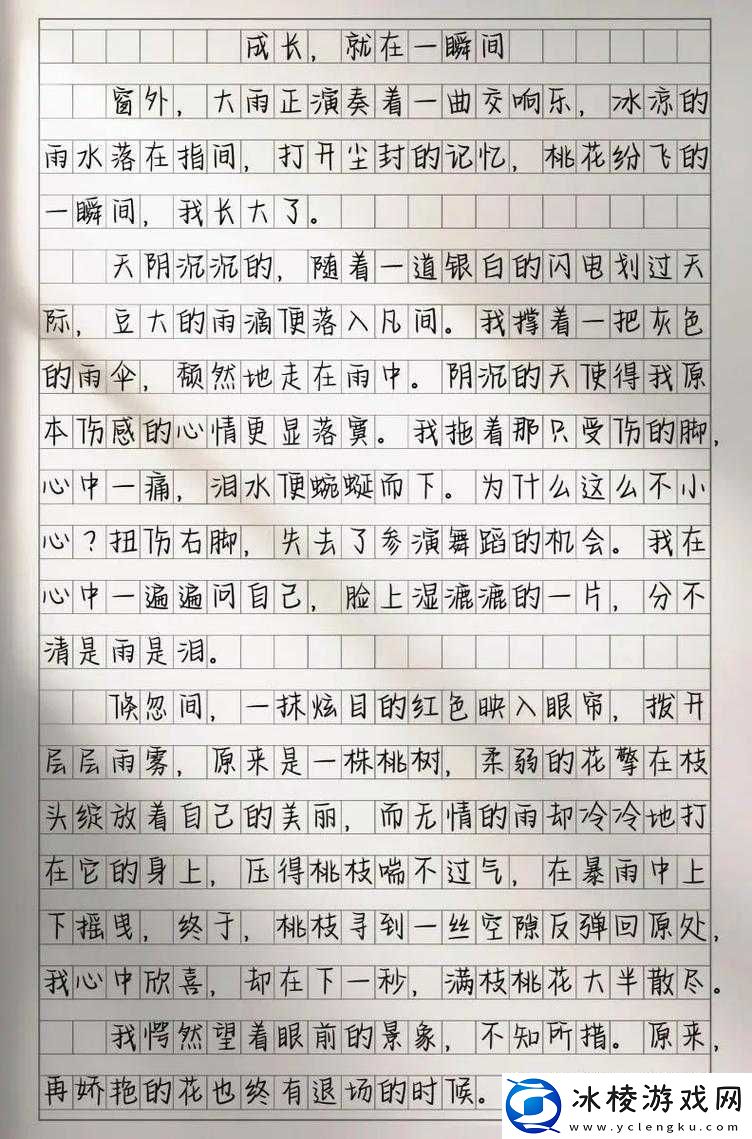 成长，就在一瞬间
窗外，大雨正演奏着一曲交响乐，冰凉的
雨水落在指间，打开尘封的记忆，桃花纷飞的
一瞬间，我长大了。
天阴沉沉的，随着一道银白的闪电划过天
际，豆大的雨滴便落入凡间。我撑着一把灰色
的雨伞，颓然地走在雨中。阴沉的天使得我原
本伤感的心情更显落寞。我拖着那只受伤的脚，
心中一痛，泪水便蜿蜒而下。为什么这么不小
心？扭伤右脚，失去了参演舞蹈的机会。我在
心中一遍遍问自己，脸上湿漉漉的一片，分不
清是雨是泪。
倏忽间，一抹炫目的红色映入眼帘，拨开
层层雨雾，原来是一株桃树，柔弱的花擎在枝
头绽放着自己的美丽，而无情的雨却冷冷地打
在它的身上，压得桃枝喘不过气，在暴雨中上
下摇曳，终于，桃枝寻到一丝空隙反弹回原处，
我心中欣喜，却在下一秒，满枝桃花大半散尽。
我愕然望着眼前的景象，不知所措。原来，
再娇艳的花也终有退场的时候。
冰棱游戏网
www.yclengku.com